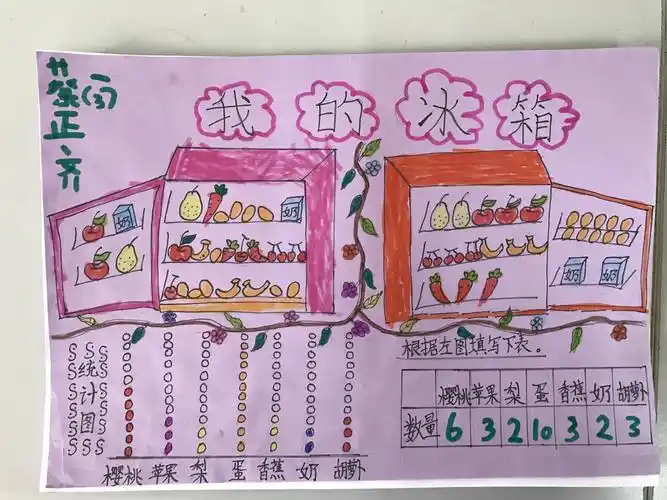 蔡正齐
(3)
我的冰箱
奶
奶
奶 奶
统计图
樱桃 苹果 梨 蛋 香蕉 奶 胡萝卜
根据左图填写下表。
樱桃 苹果 梨 蛋 香蕉 奶 胡萝卜
数量 6 3 2 10 3 2 3